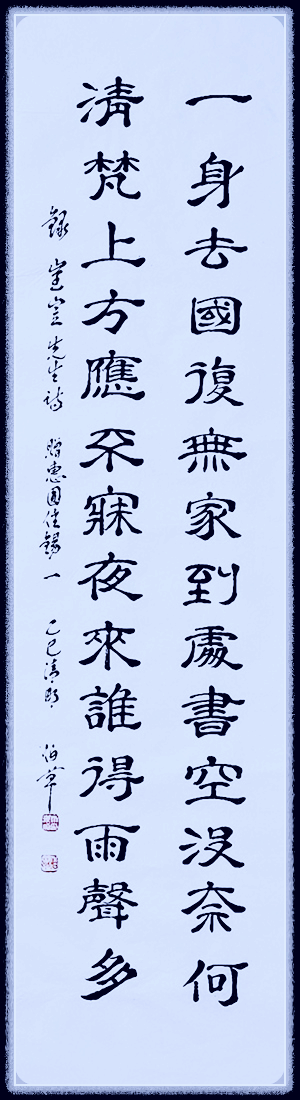 一身去國復無家到處書空沒奈何
清梵上方應不寐夜來誰得雨聲多
錄 先生詩 贈惠圓 一 乙巳清明